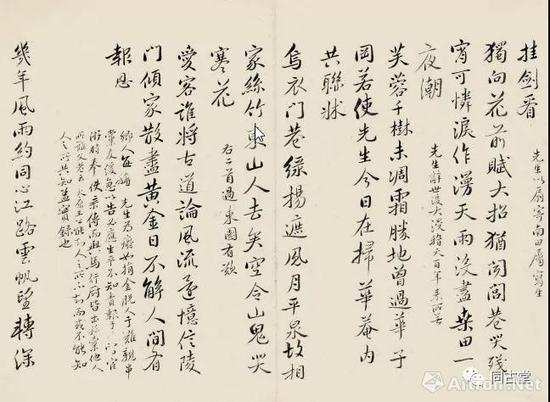 挂剑看 先生以扇寄南田属写生
獨向花前賦大招猶聞閭巷哭殘
宵可憐淚作漫天雨没盡桑田一
夜潮 先生辭世後大潑稽天百年未所有
芙蓉千樹未凋霜勝地曾過華子
岡若使先生今日在掃華菴内
共聯牀
烏衣門巷綠楊遮風月平泉故相
家絲竹東山人去矣空令山鬼哭
寒花 右二首過東園有歎
愛客誰將古道論風流還憶信陵
門傾家散盡黄金日不解人間有
報恩
人之所共知蓋實錄也
幾年風雨約同心江路雲帆望轉深
同古堂
Artron.Net